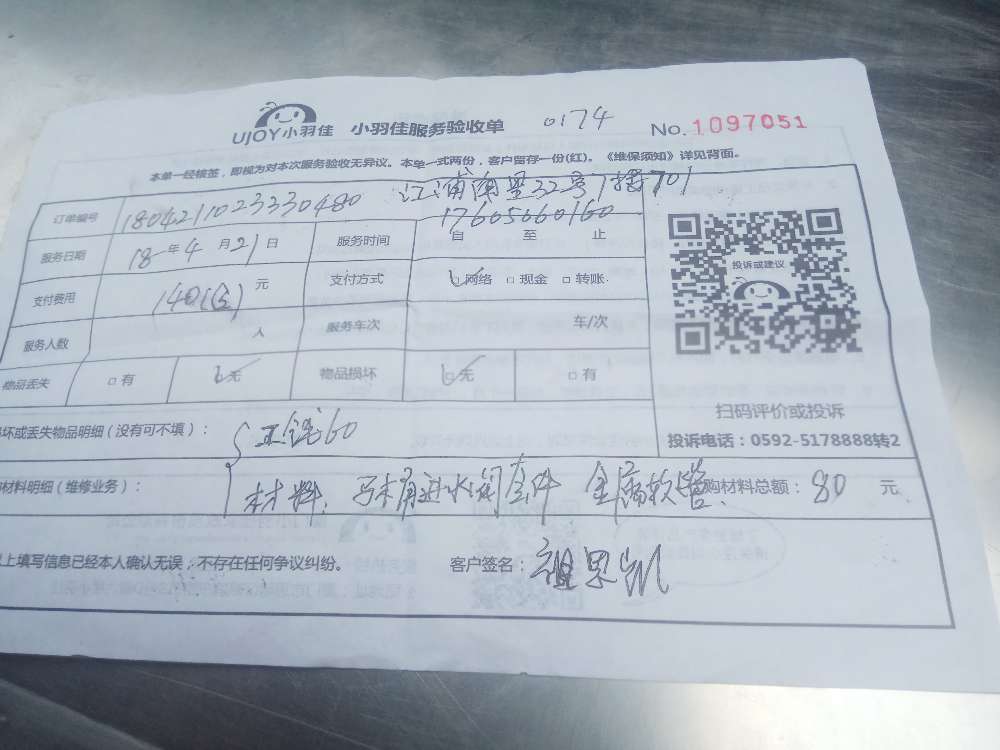 UJOY小羽佳 小羽佳服务验收单 0174 No.1097051
本单一经核签，即视为对本次服务验收无异议。本单一式两份，客户留存一份(红)。《维保须知》详见背面。
订单编号 1804211023330480 江浦南里32号7楼701
17605060160
服务日期 18年4月21日 服务时间 自 至 止
支付费用 140 元 支付方式 网络 现金 转账
服务人数 人 服务车次 车/次
物品丢失 有 无 物品损坏 无 有
投诉或建议
扫码评价或投诉
投诉电话：0592-5178888转2
坏或丢失物品明细（没有可不填）： 工钱60
材料明细（维修业务）： 材料 马桶进水阀套件 金属软管 购材料总额：80 元
上填写信息已经本人确认无误，不存在任何争议纠纷。 客户签名：